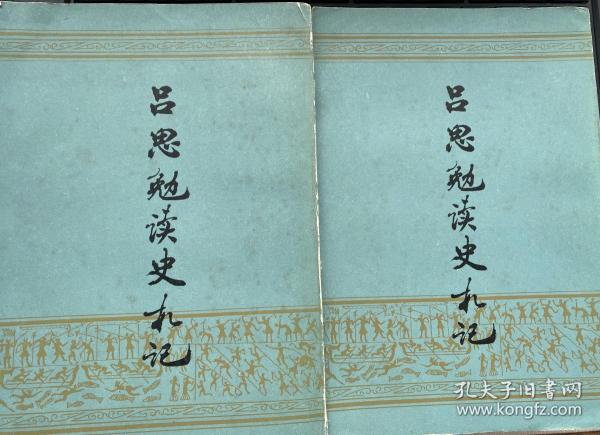 吕思勉读史札记
吕思勉读史札记
孔夫子旧书网
www.kongfz.com